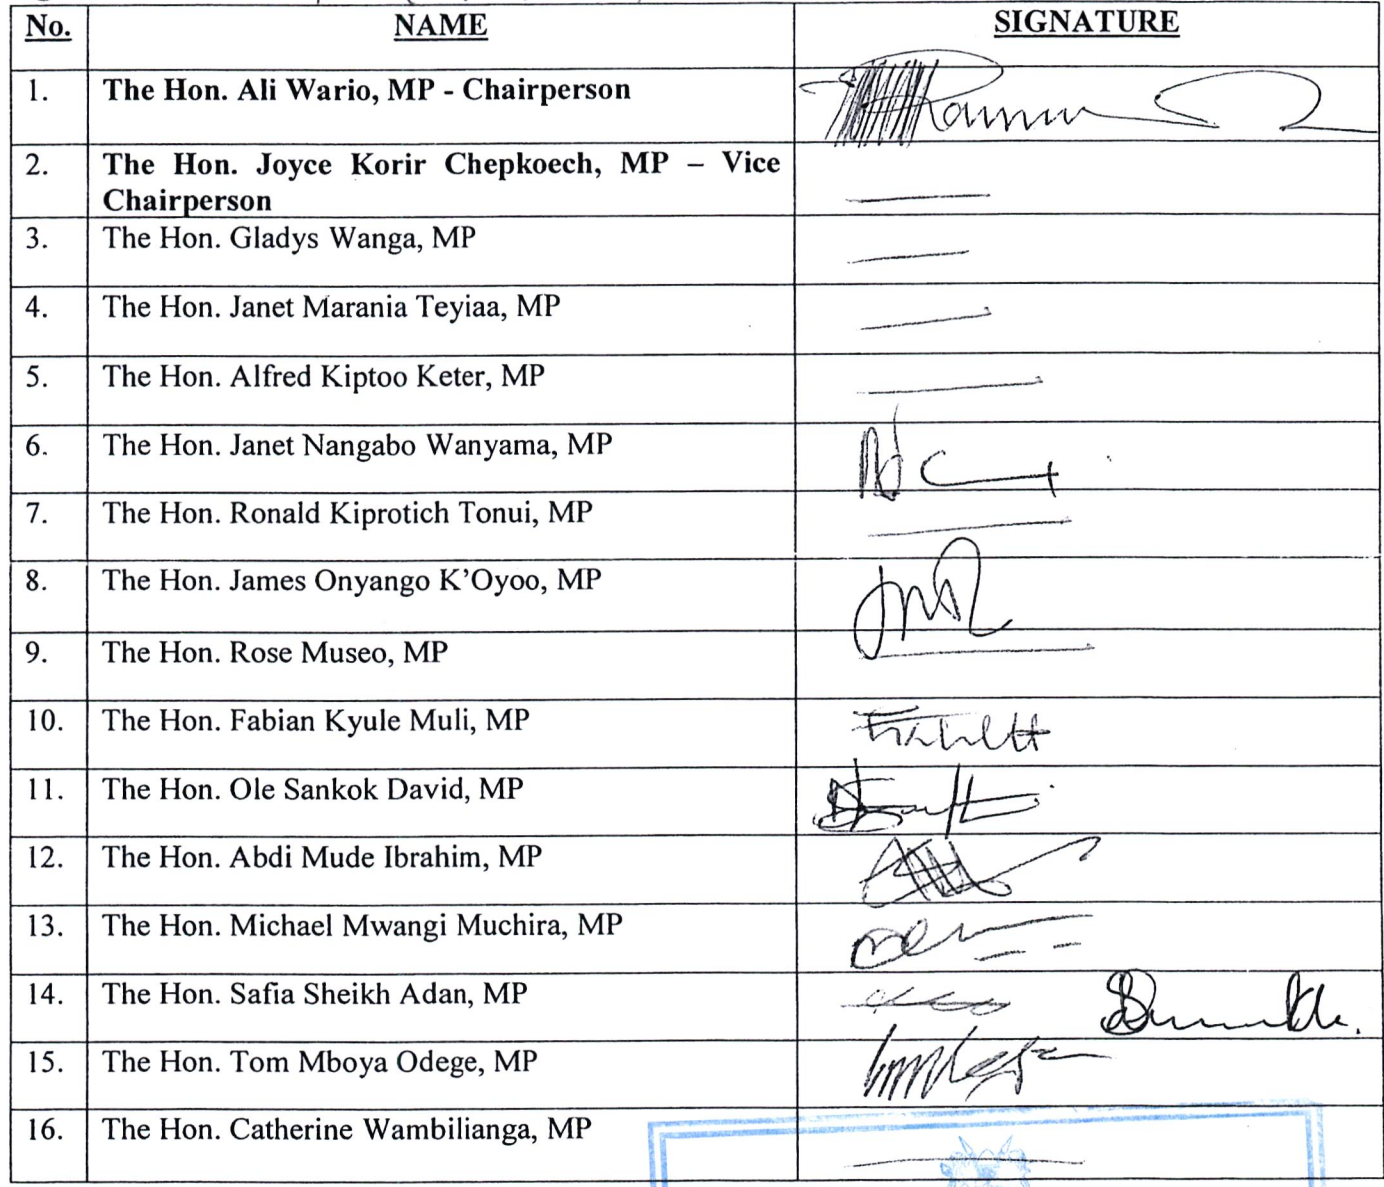 No. NAME SIGNATURE
1. The Hon. Ali Wario, MP - Chairperson
2. The Hon. Joyce Korir Chepkoech, MP – Vice
Chairperson
3. The Hon. Gladys Wanga, MP
4. The Hon. Janet Marania Teyiaa, MP
5. The Hon. Alfred Kiptoo Keter, MP
6. The Hon. Janet Nangabo Wanyama, MP
7. The Hon. Ronald Kiprotich Tonui, MP
8. The Hon. James Onyango K’Oyoo, MP
9. The Hon. Rose Museo, MP
10. The Hon. Fabian Kyule Muli, MP
11. The Hon. Ole Sankok David, MP
12. The Hon. Abdi Mude Ibrahim, MP
13. The Hon. Michael Mwangi Muchira, MP
14. The Hon. Safia Sheikh Adan, MP
15. The Hon. Tom Mboya Odege, MP
16. The Hon. Catherine Wambilianga, MP